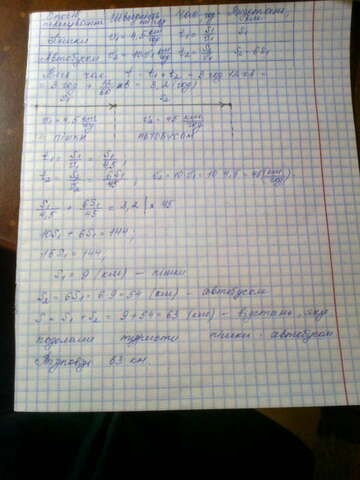 Спосіб Швидкість, Час, год Відстань,
пересування км/год км
Пішки v₁ = 4,5 км/год t₁ = S₁/v₁ S₁
Автобусом v₂ = 10v₁ км/год t₂ = S₂/v₂ S₂ = 6S₁
час t = t₁ + t₂ = 3 год 12 хв =
= 3 год + 12/60 хв = 3,2 (год)
S₁ S₂
v₁ = 4,5 км/год v₂ = 45 км/год
пішки автобусом
t₁ = S₁/v₁ = S₁/4,5;
t₂ = S₂/v₂ = 6S₁/45; v₂ = 10v₁ = 10·4,5 = 45 (км/год).
S₁/4,5 + 6S₁/45 = 3,2 | × 45
10S₁ + 6S₁ = 144,
16S₁ = 144,
S₁ = 9 (км) – пішки
S₂ = 6S₁ = 6·9 = 54 (км) – автобусом
S = S₁ + S₂ = 9 + 54 = 63 (км) – відстань, яку
подолали туристи пішки і автобусом
Відповідь 63 км.